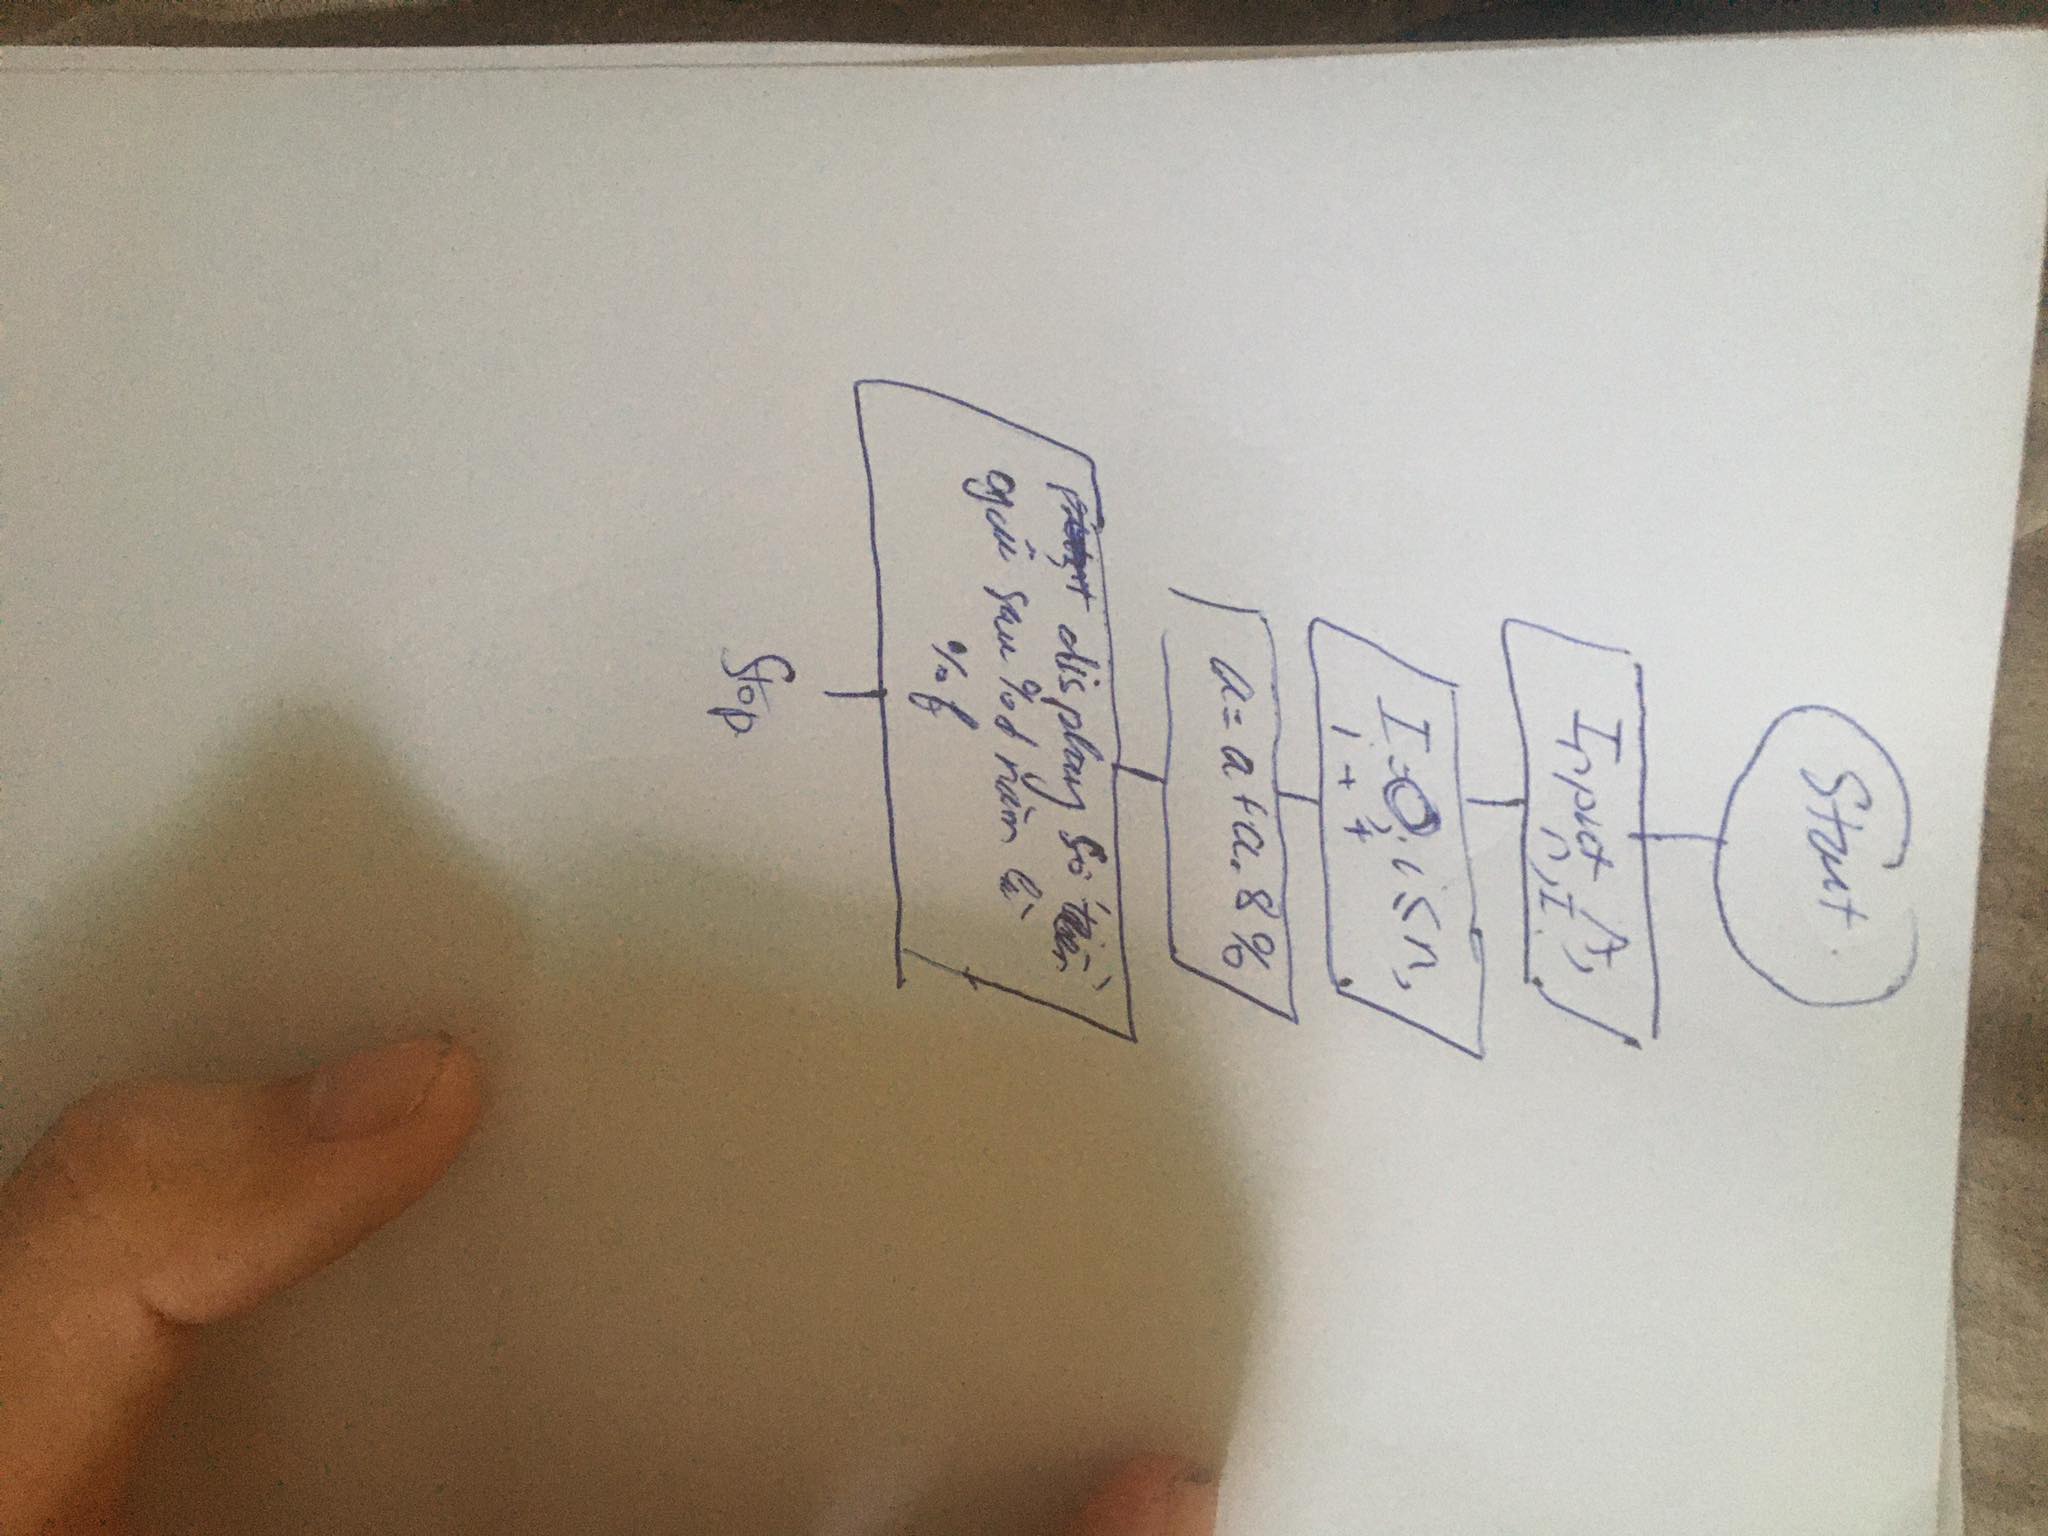 Start.
Input A,
n, I.
I = 0, i ≤ n,
i++
a = a + a. 8%
display số tiền
gửi sau %d năm là
%f
Stop